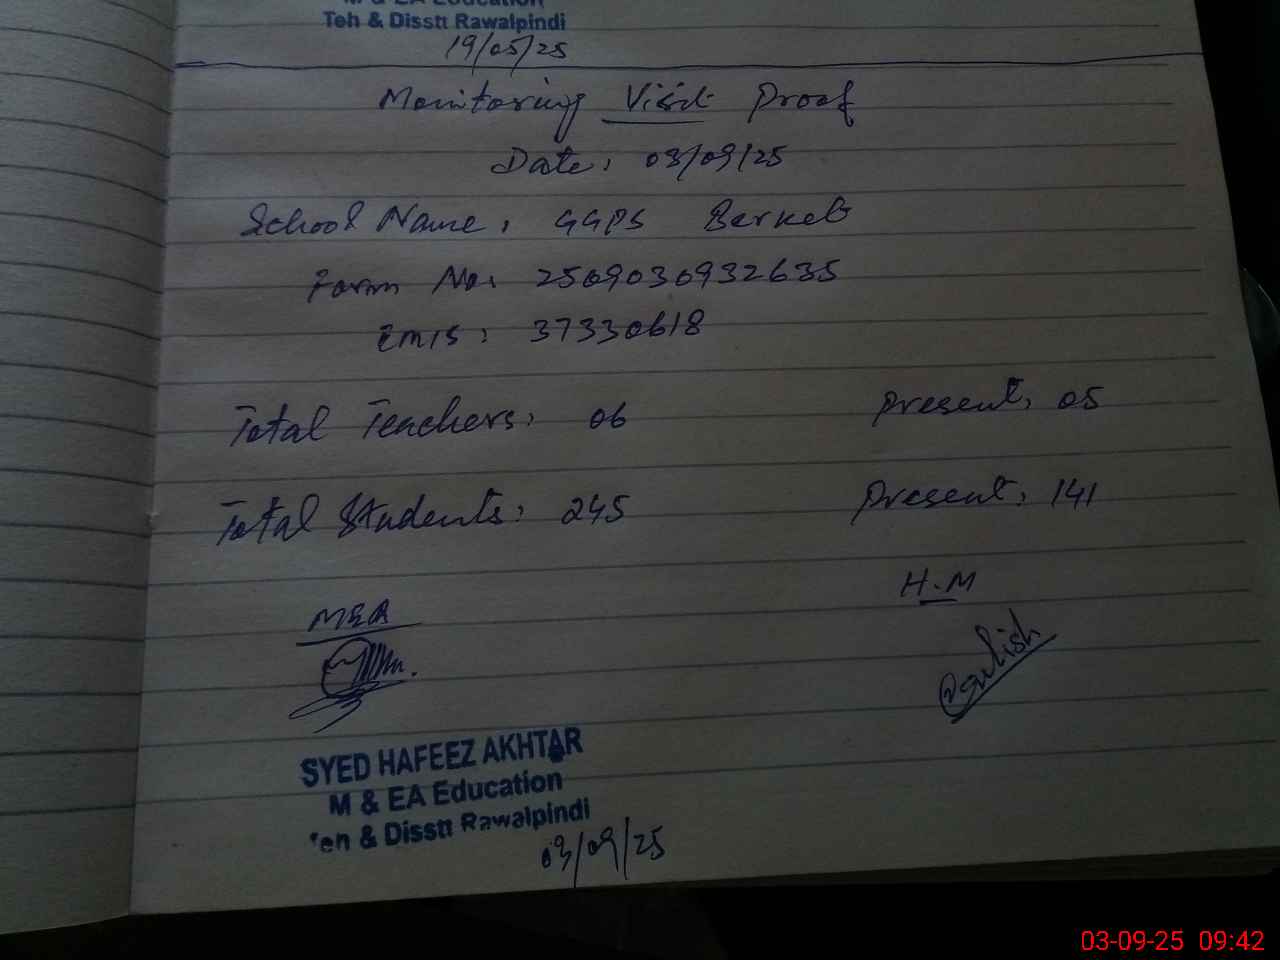 M & EA Education
Teh & Disstt Rawalpindi
19/05/25
Monitoring Visit Proof
Date: 03/09/25
School Name: GGPS Barkat
Form No: 2509030932635
EMIS: 37330618
Total Teachers: 06 Present: 05
Total Students: 245 Present: 141
MEA H.M
SYED HAFEEZ AKHTAR
M & EA Education
Teh & Disstt Rawalpindi
03/09/25
03-09-25 09:42